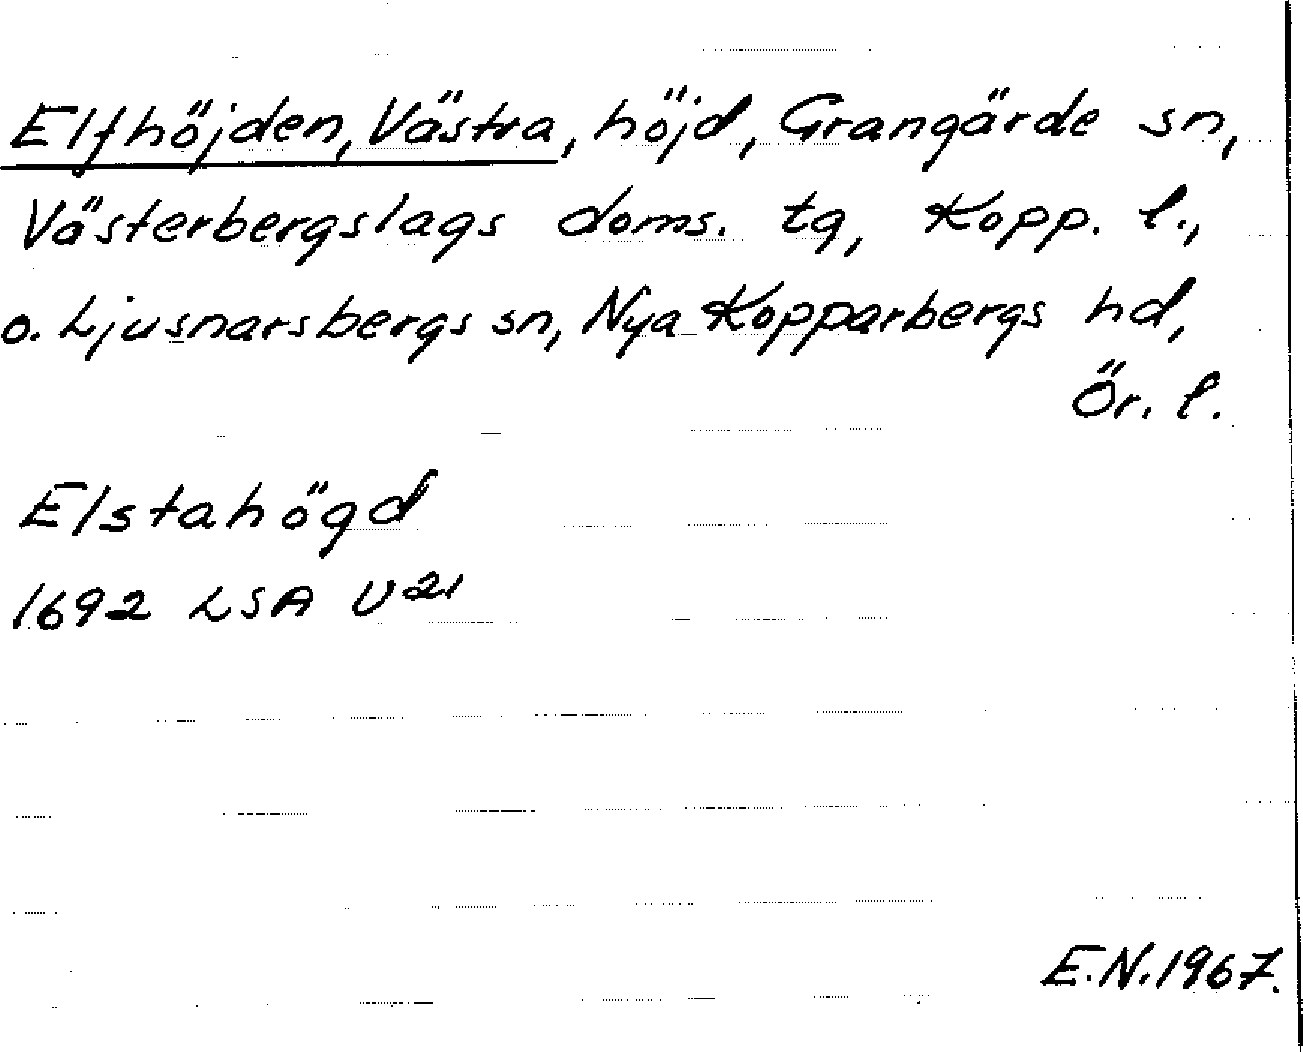 Elfhöjden, Västra, höjd, Grangärde sn,
Västerbergslags doms. tg, Kopp. l.,
o. Ljusnarsbergs sn, Nya Kopparbergs hd,
Ör. l.
Elstahögd
1692 LSA U21
E.N. 1967.